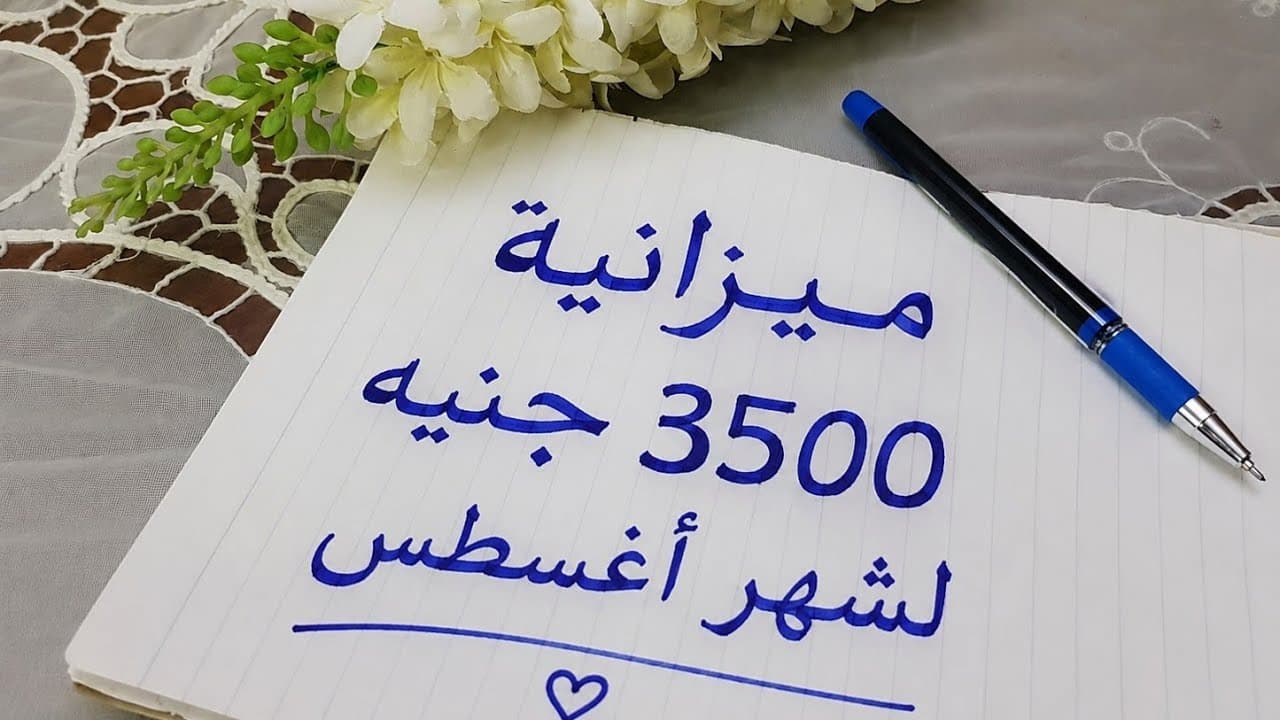 ميزانية
3500 جنيه
لشهر أغسطس